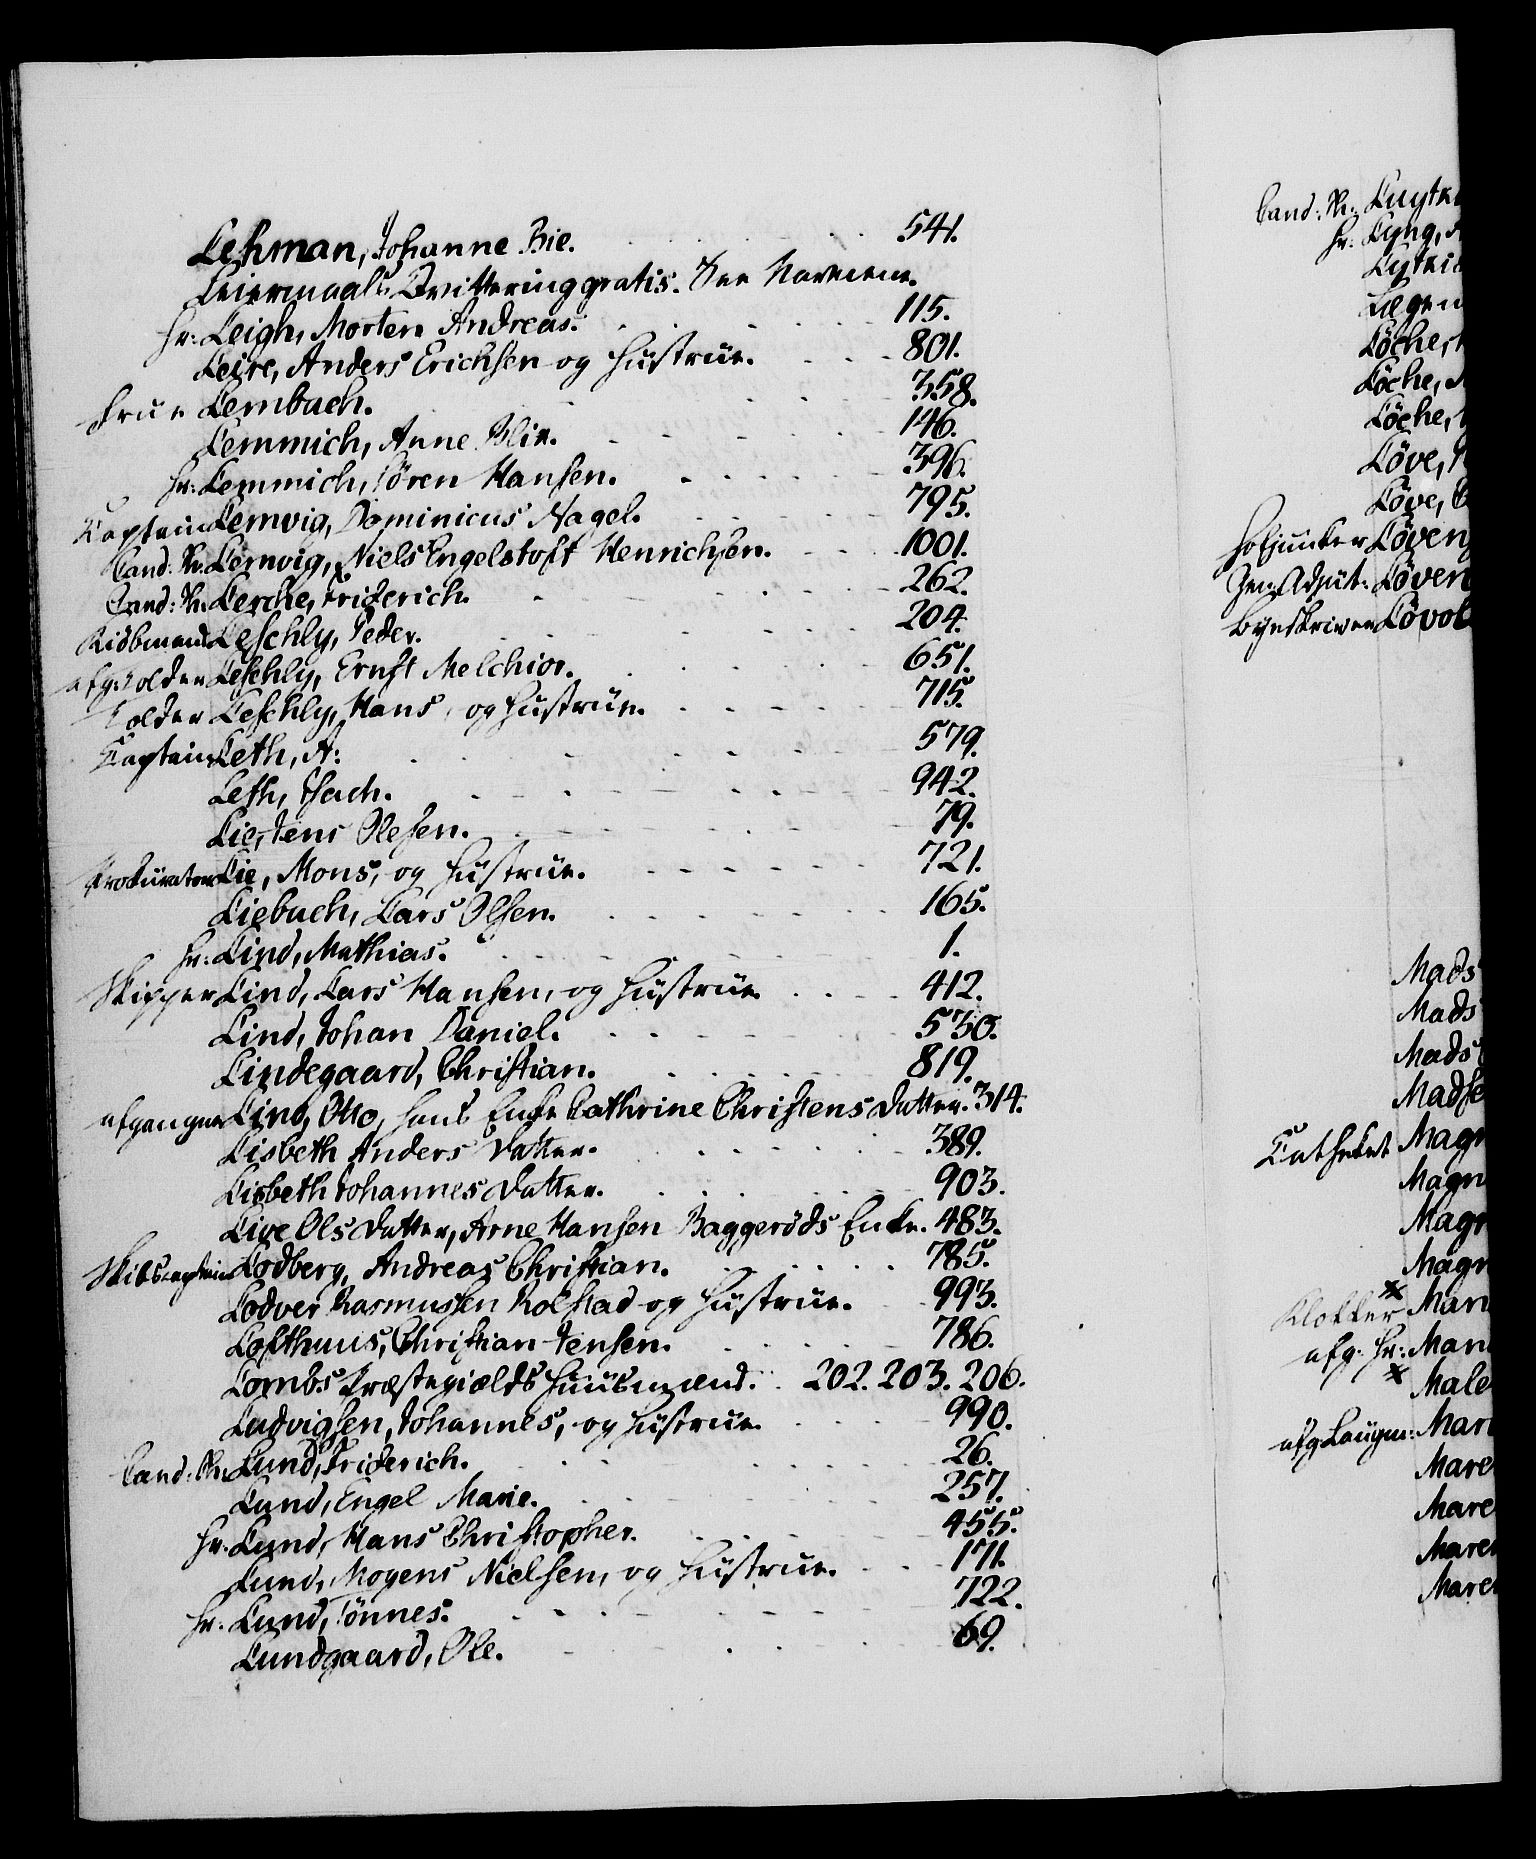 Lehman, Johanne Bie. 541.
Leiermaals Qvittering gratis. See Navnene.
Hr: Leigh, Morten Andreas. 115.
Leire, Anders Erichsen og Hustrue. 801.
Frue Lembach. 358.
Lemmich, Anne Blix. 146.
Hr: Lemmich, Sören Hansen. 396.
Captain Lemvig, Dominicus Nagel. 795.
Cand: Ph. Lemvig, Niels Engelstoft Henrichsen. 1001.
Cand: Ph. Lerche, Friderich. 262.
Kiöbmand Leschly, Peder. 204.
afg: Tolder Leschly, Ernst Melchior. 651.
Tolder Leschly, Hans, og Hustrue. 715.
Captain Leth, A: 579.
Leth, Isach. 942.
Lie, Jens Olesen. 79.
Prokurator Lie, Mons, og Hustrue. 721.
Liebach, Lars Olsen. 165.
Hr: Lind, Mathias. 1.
Skipper Lind, Lars Hansen, og Hustrue 412.
Lind, Johan Daniel. 530.
Lindegaard, Christian. 819.
afgangne Lind, Otto, hans Enke Cathrine Christens Datter. 314.
Lisbeth Anders Datter. 389.
Lisbeth Johannes Datter. 903.
Live Ols Datter, Arne Hansen Baggeröds Enke. 483.
Skibscaptain Lodberg, Andreas Christian. 785.
Lodver Rasmussen Rolstad og Hustrue. 993.
Lofthuus, Christian Jensen. 786.
Lombs Præstegields Huusmænd. 202. 203. 206.
Ludvigsen, Johannes, og Hustrue 990.
Cand: Ph. Lund, Friderich. 26.
Lund, Engel Marie. 257.
Hr. Lund, Hans Christopher. 455.
Lund, Mogens Nielsen, og Hustrue. 171.
Hr. Lund, Tönnes. 722.
Lundgaard, Ole. 69.
Cand: Ph.
Hr: Lyng,
Löche,
Löche,
Löche,
Löve,
Löve,
Hofjunker Löven
Gen: Adjut: Löven
Byeskriver Lövol
Mads
Mads
Mads
Madse
Catheket Magn
Magn
Magn
Magn
Klokker Man
afg. Hr: Man
Male
afg. Laugm: Mar
Mare
Mare
Mare
Mare